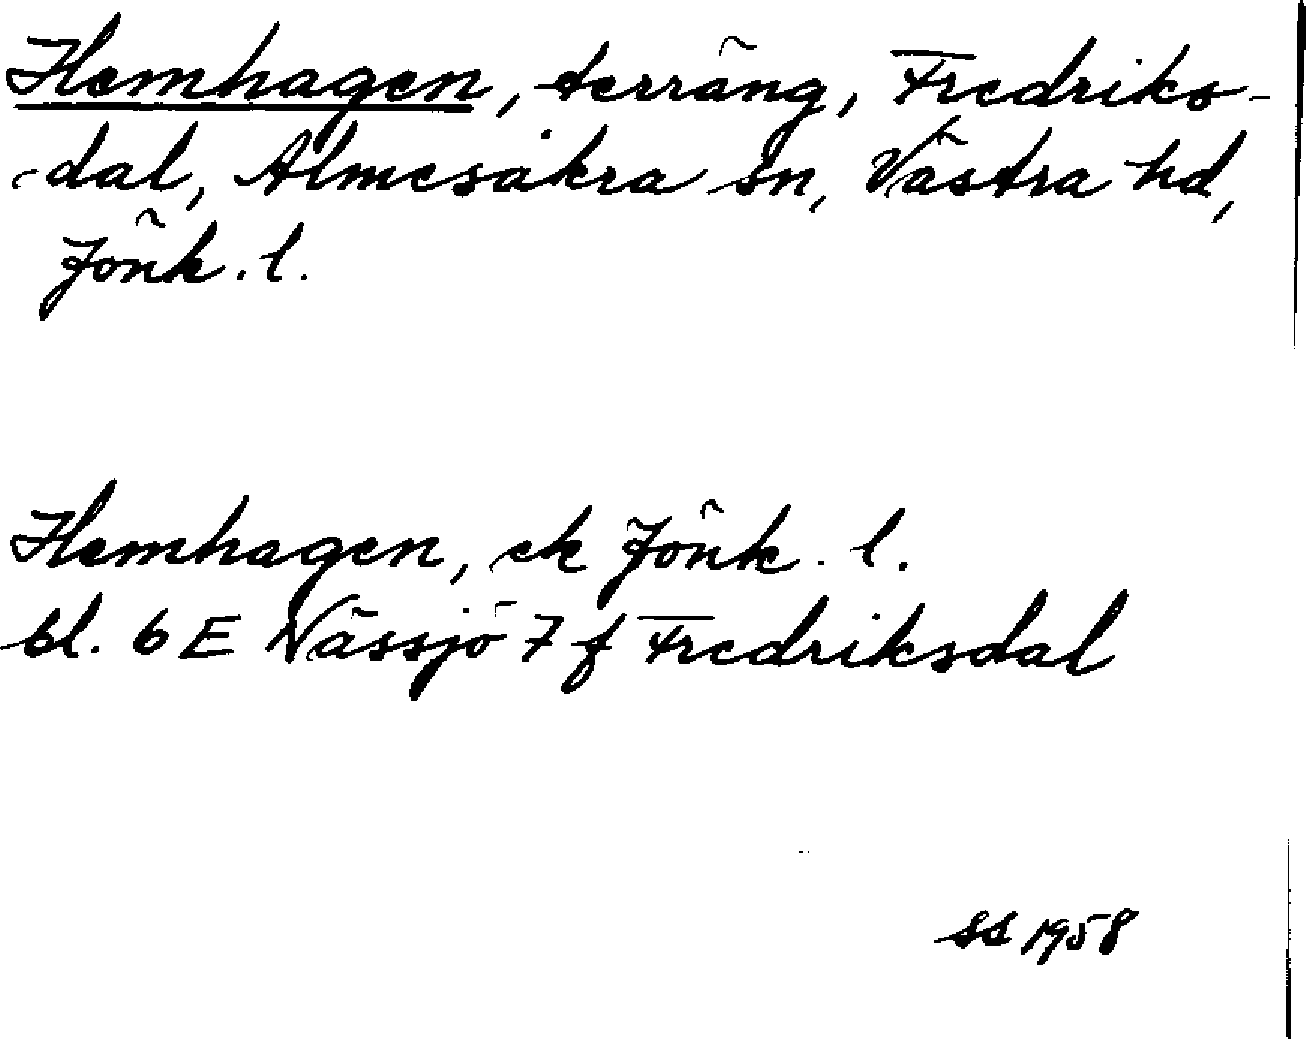 Hemhagen, terräng, Fredriks-
-dal, Almesåkra sn, Västra hd,
Jönk. l.
Hemhagen, ek Jönk. l.
bl. 6 E Nässjö 7 f Fredriksdal
SS 1958